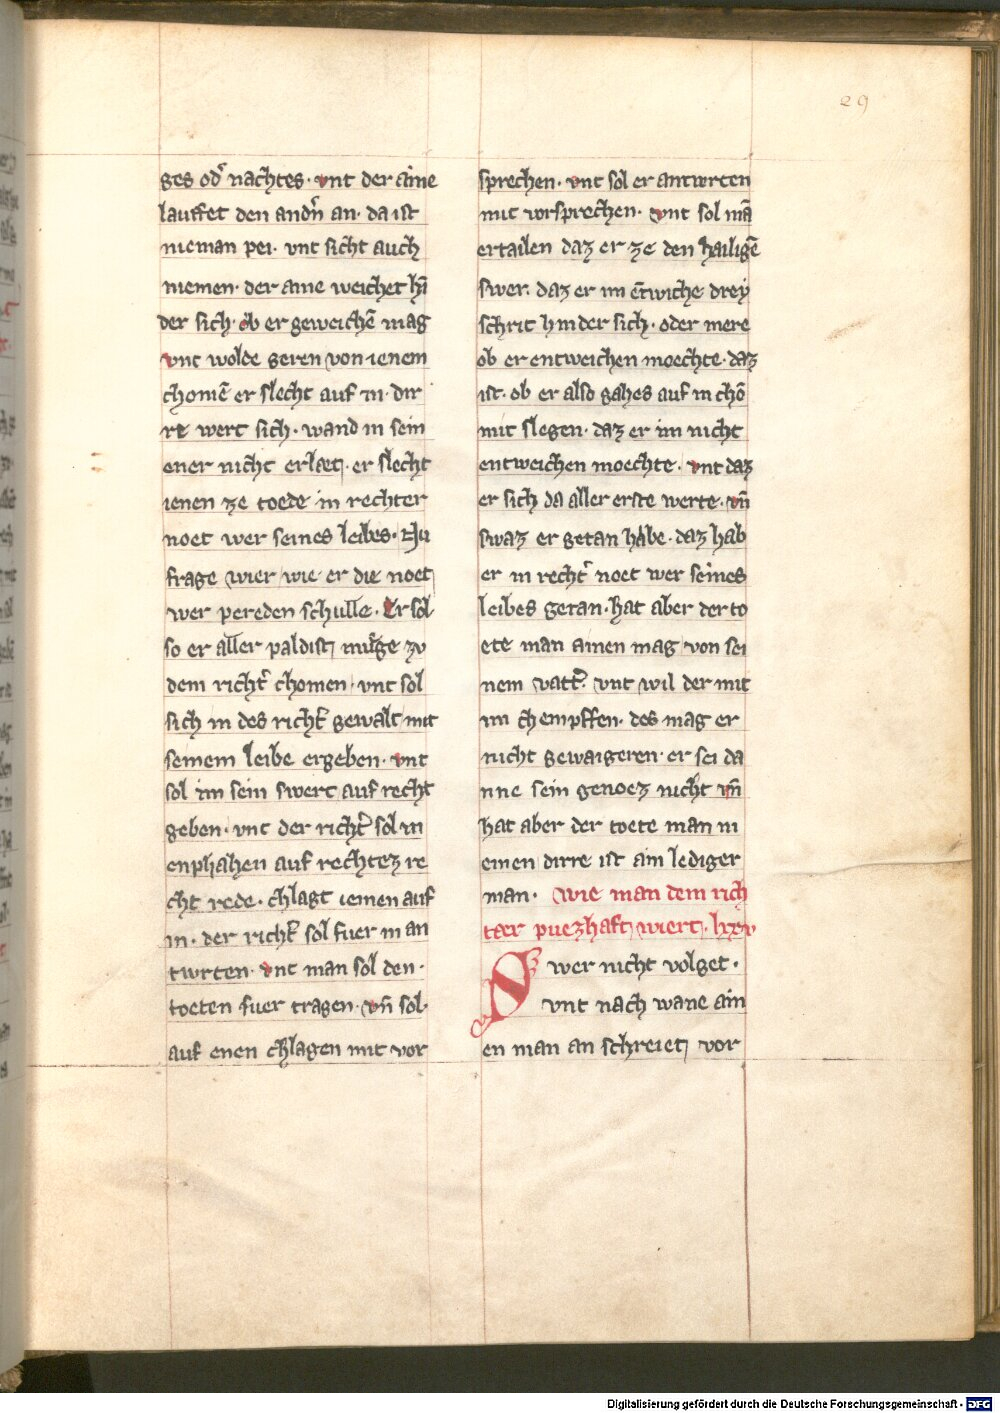 29
ges od̾ nachtes· vnt der aine
lauffet den andn̄ an· da ist
nieman pei· vnt sicht auch
niemen· der aine weichet hī
der sich· ob er geweichē mag
vnt wolde geren von ienem
chomē er slecht auf in· dir
re wert sich· wand in sein
ener nicht erlæt· er slecht
ienen ze toede in rechter
noet wer seines leibes· Nu
frage wier wie er die noet
wer pereden schulle· Er sol
so er aller paldist muge zv
dem richt̾ chomen· vnt sol
sich in des richt̾ gewalt mit
seinem leibe ergeben· vnt
sol im sein swert auf recht
geben· vnt der richt̾ sol in
enphahen auf rechtez re
cht rede· chlagt iemen auf
in· der richt̾ sol fuer in an
twrten· vnt man sol den·
toeten fuer tragen· vn̄ sol·
auf enen chlagen mit vor
sprechen· vnt sol er antwrten
mit vorsprechen· vnt sol mā
ertailen daz er ze den hailigē
swer· daz er im ētwiche drey
schrit hinder sich· oder mere
ob er entweichen moechte· daz
ist· ob er also gahes auf in chō
mit slegen· daz er im nicht
entweichen moechte· vnt daz
er sich da aller erste werte· vn̄
swaz er getan habe· daz hab
er in recht̾ noet wer seines
leibes getan· hat aber der to
ete man ainen mag von sei
nem vatt̾· vnt wil der mit
im chempffen· des mag er
nicht gewaigeren· er sei da
nne sein genoez nicht vn̄
hat aber der toete man ni
emen dirre ist ain lediger
man· wie man dem rich
tær puezhaft wiert· lxxv
Swer nicht volget·
vnt nach wane ain
en man an schreiet vor
Digitalisierung gefördert durch die Deutsche Forschungsgemeinschaft - DFG